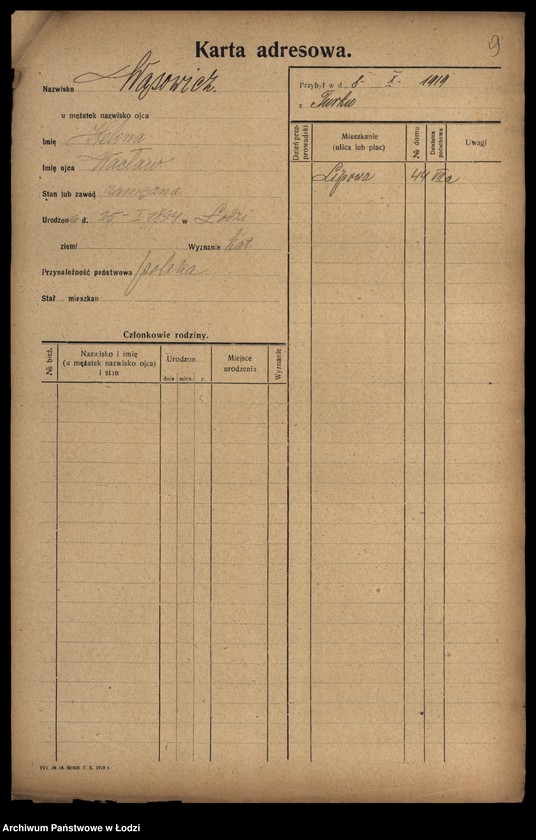 Karta adresowa.
9
Nazwisko Wąsowicz.
u mężatek nazwisko ojca
Imię Helena
Imię ojca Wacław
Stan lub zawód zamężna
Urodzona d. 25 - I 1894 w Łodzi
ziemi Wyznanie kat.
Przynależność państwowa polska
Stał mieszkan
Przybył w d. 8- X - 1919
z Turku
Dzień przeprowadzki
Mieszkanie
(ulica lub plac)
№ domu
Dzielnica podatkowa
Uwagi
Lipowa 44 VII a
Członkowie rodziny.
№ bież.
Nazwisko i imię
(u mężatek nazwisko ojca)
i stan
Urodzon
dnia mies. r.
Miejsce
urodzenia
Wyznanie
60000 7. X. 1919 r.
Archiwum Państwowe w Łodzi